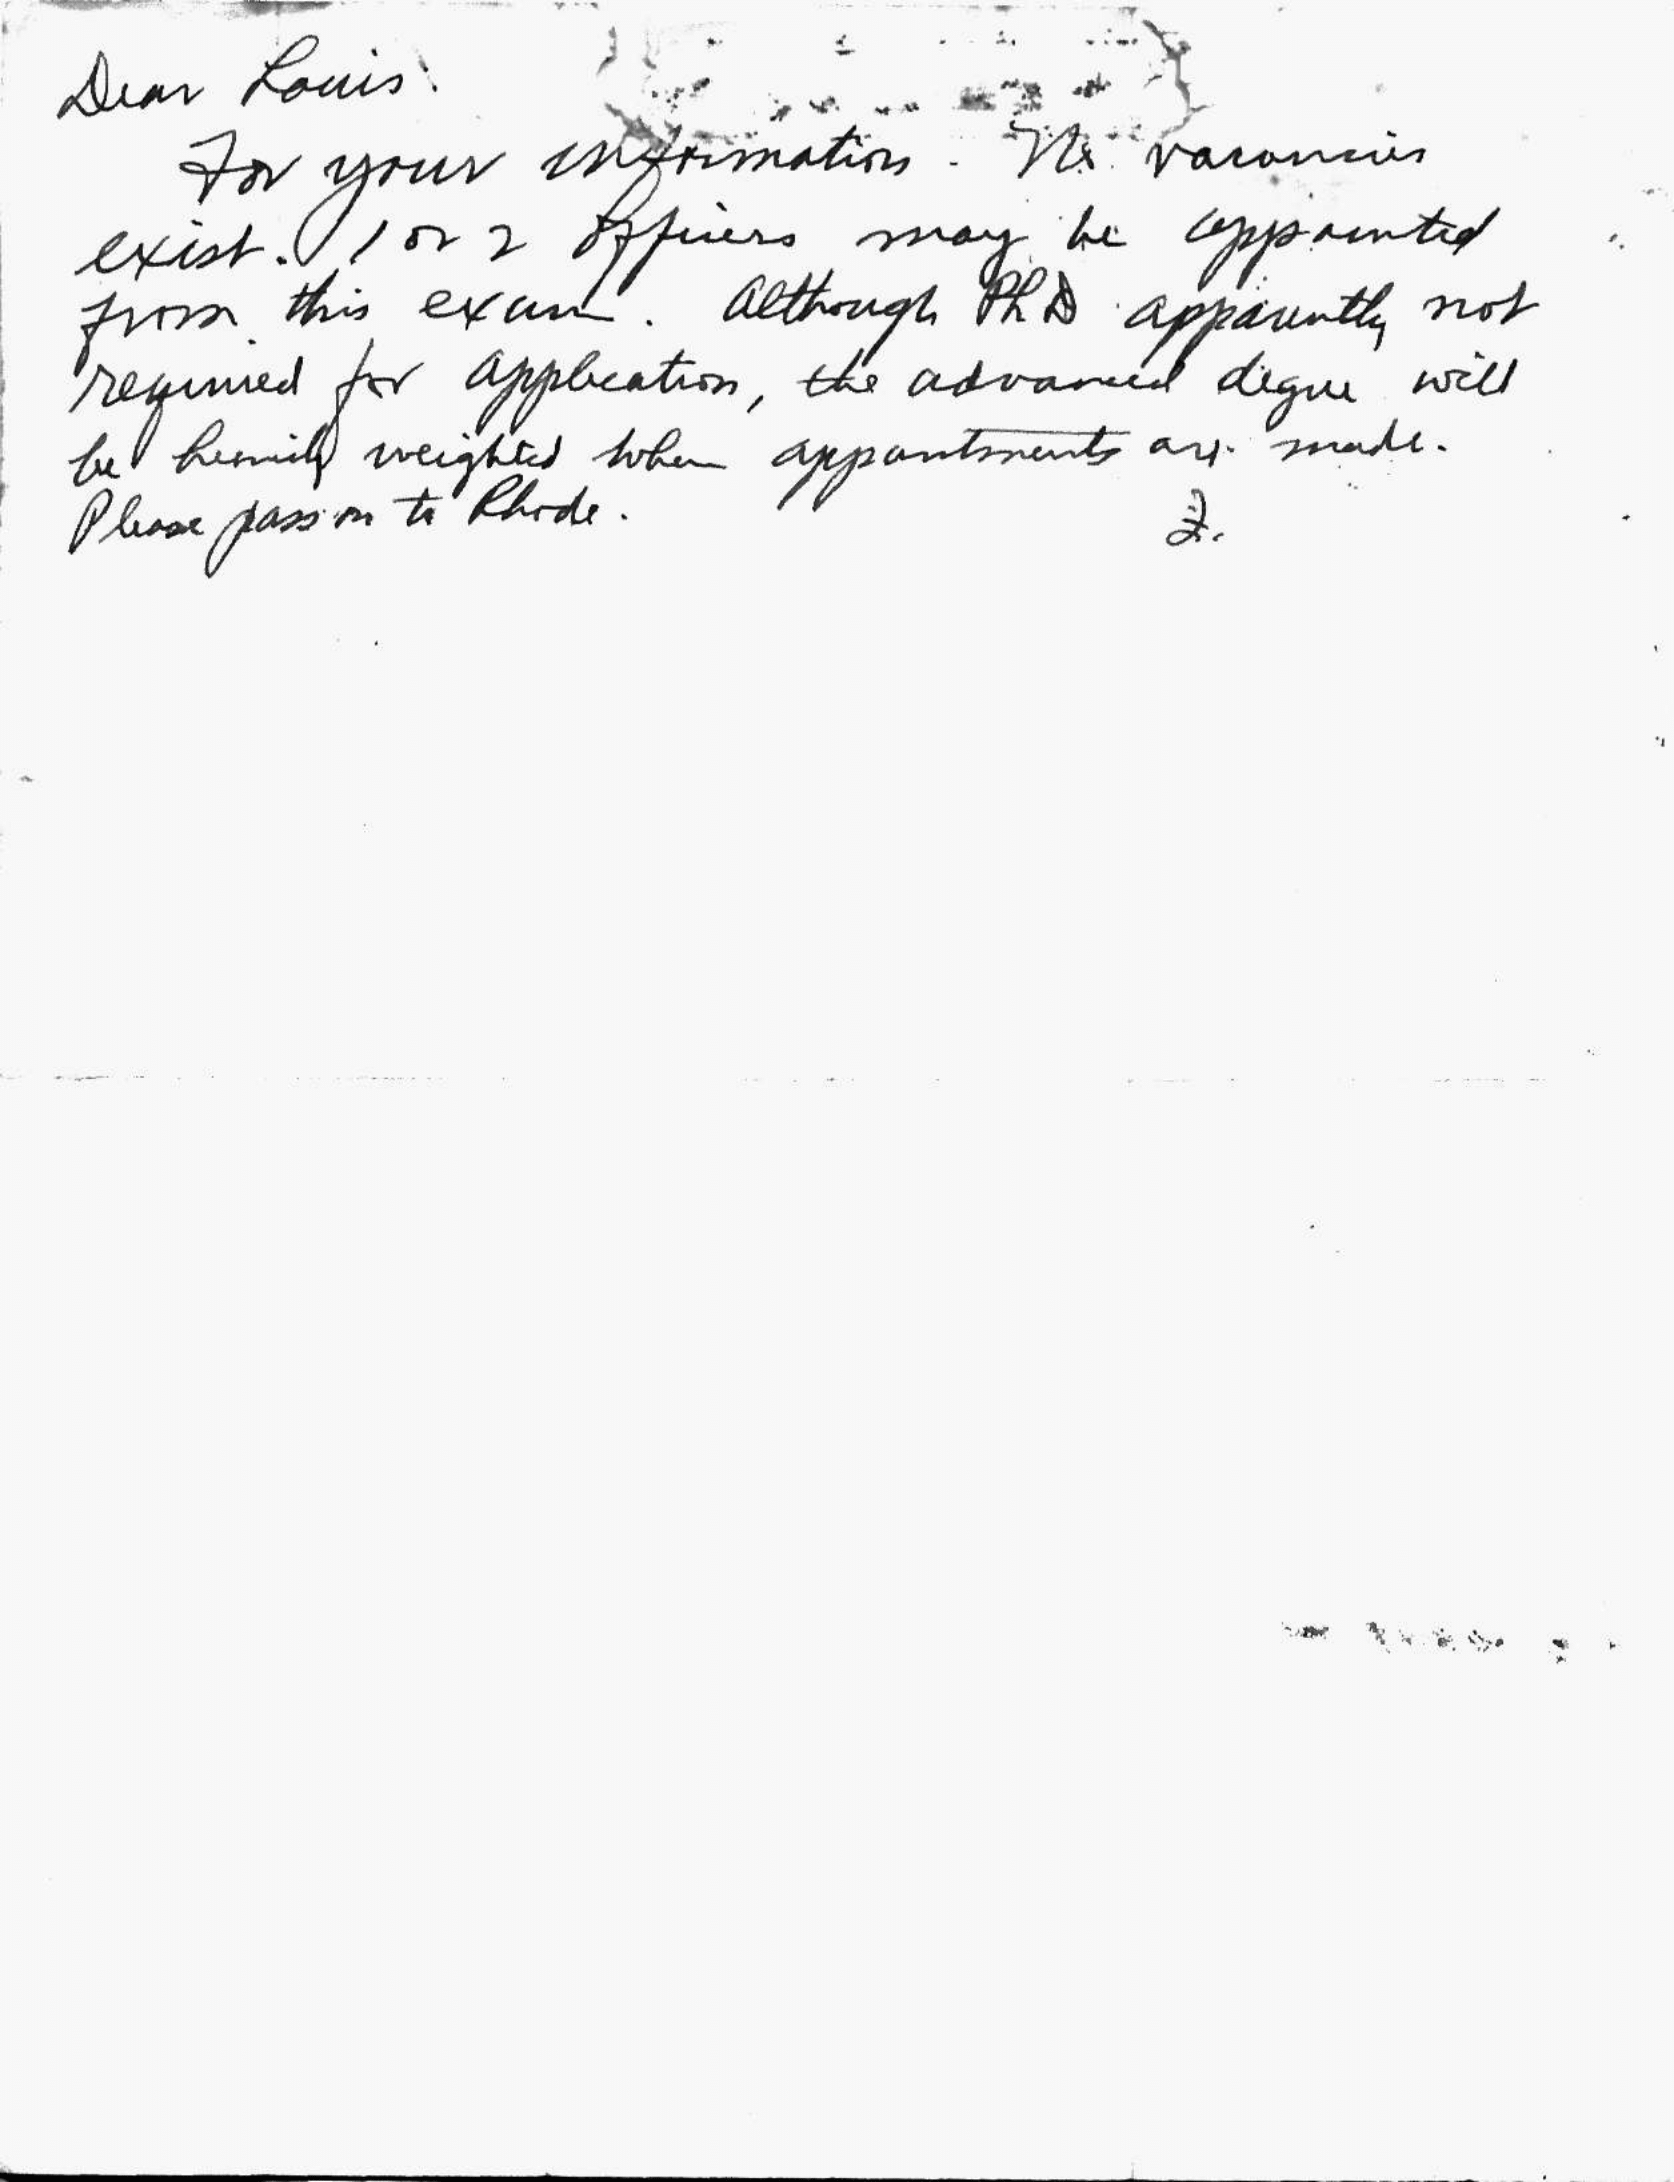 Dear Louis:
For your information. No vacancies
exist. 1 or 2 officers may be appointed
from this exam. Although PhD apparently not
required for application, the advanced degree will
be heavily weighted when appointments are made.
Please pass on to Rhode.